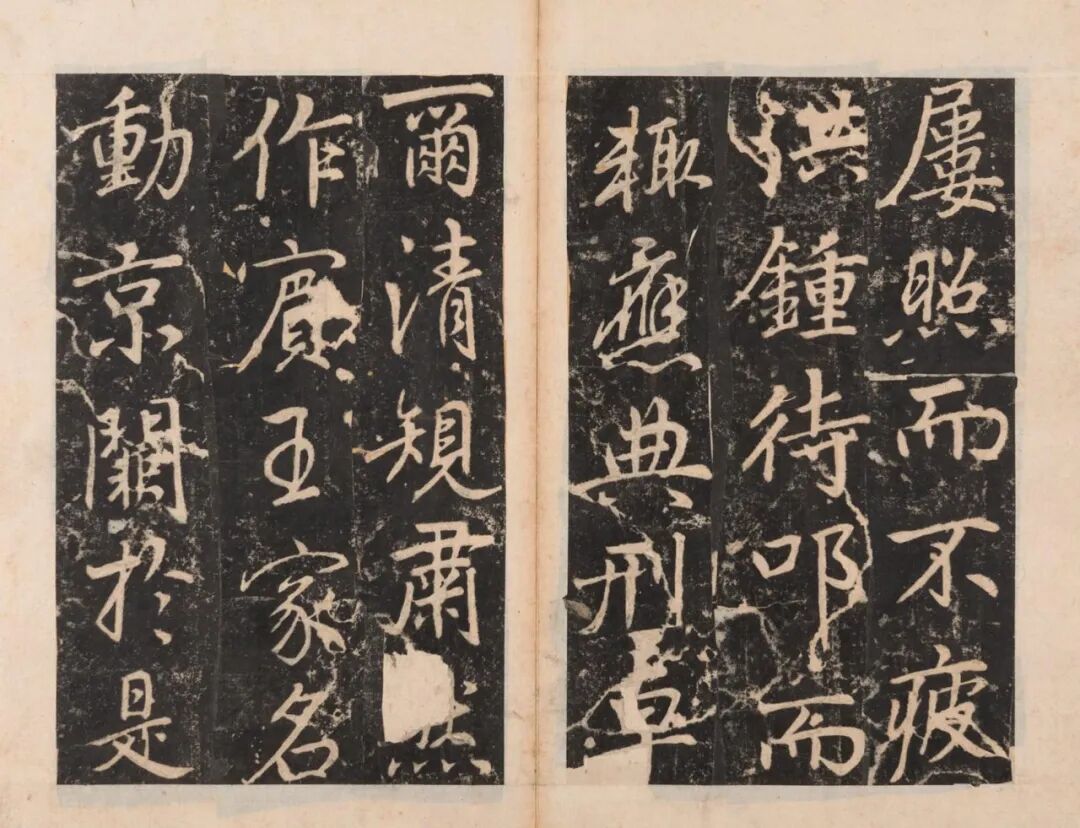 屢照而不疲
洪鍾待叩而
輙應典刑卓
爾清規肅然
作賓王家名
動京闕於是